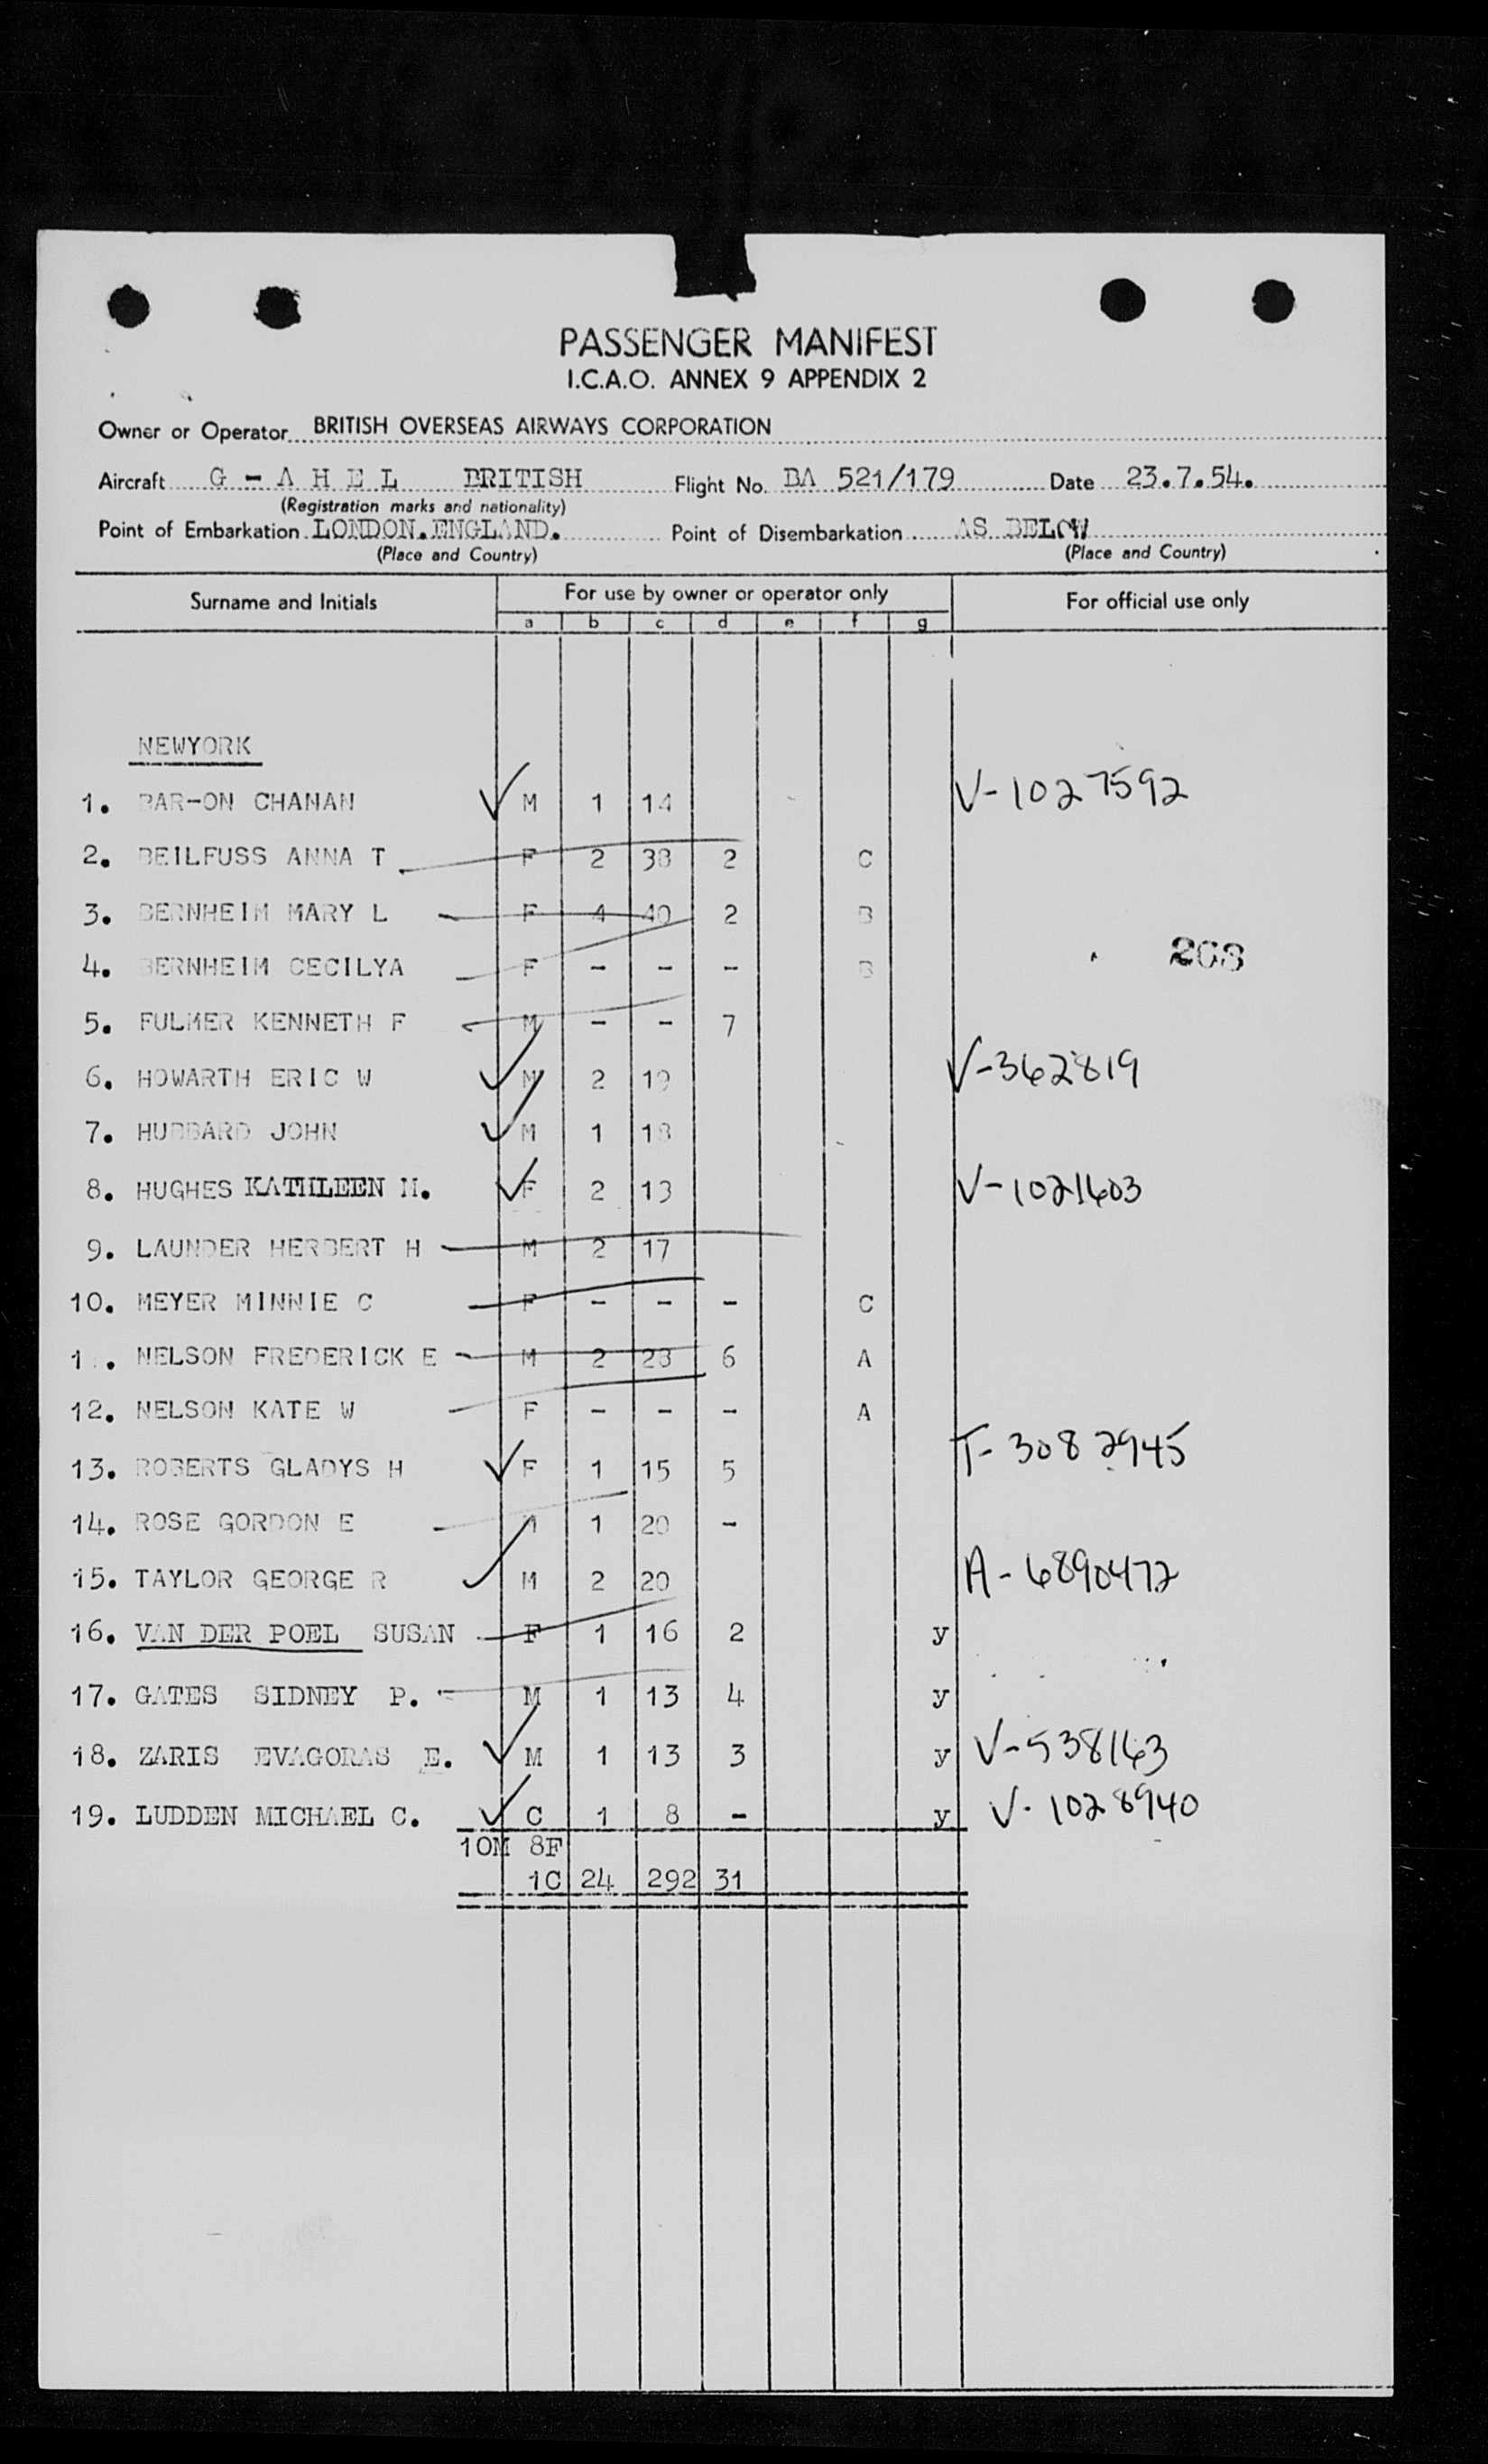 PASSENGER MANIFEST
I.C.A.O. ANNEX 9 APPENDIX 2
Owner or Operator BRITISH OVERSEAS AIRWAYS CORPORATION
Aircraft G - A H E L BRITISH Flight No. BA 521/179 Date 23.7.54.
(Registration marks and nationality)
Point of Embarkation LONDON.ENGLAND. Point of Disembarkation AS BELOW
(Place and Country) (Place and Country)
Surname and Initials For use by owner or operator only For official use only
a b c d e f g
NEWYORK
1. BAR-ON CHANAN M 1 14 V-1027592
2. BEILFUSS ANNA T F 2 38 2 C
3. BERNHEIM MARY L F 4 40 2 B
4. BERNHEIM CECILYA F - - - B 268
5. FULMER KENNETH F M - - 7
6. HOWARTH ERIC W M 2 19 V-362819
7. HUBBARD JOHN M 1 18
8. HUGHES KATHLEEN M. F 2 13 V-1021603
9. LAUNDER HERBERT H M 2 17
10. MEYER MINNIE C F - - - C
1 . NELSON FREDERICK E M 2 28 6 A
12. NELSON KATE W F - - - A
13. ROBERTS GLADYS H F 1 15 5 T-3082945
14. ROSE GORDON E M 1 20 -
15. TAYLOR GEORGE R M 2 20 A-6890472
16. VAN DER POEL SUSAN F 1 16 2 y
17. GATES SIDNEY P. M 1 13 4 y
18. ZARIS EVAGORAS E. M 1 13 3 y V-538163
19. LUDDEN MICHAEL C. C 1 8 - y V-1028940
10M 8F
1C 24 292 31